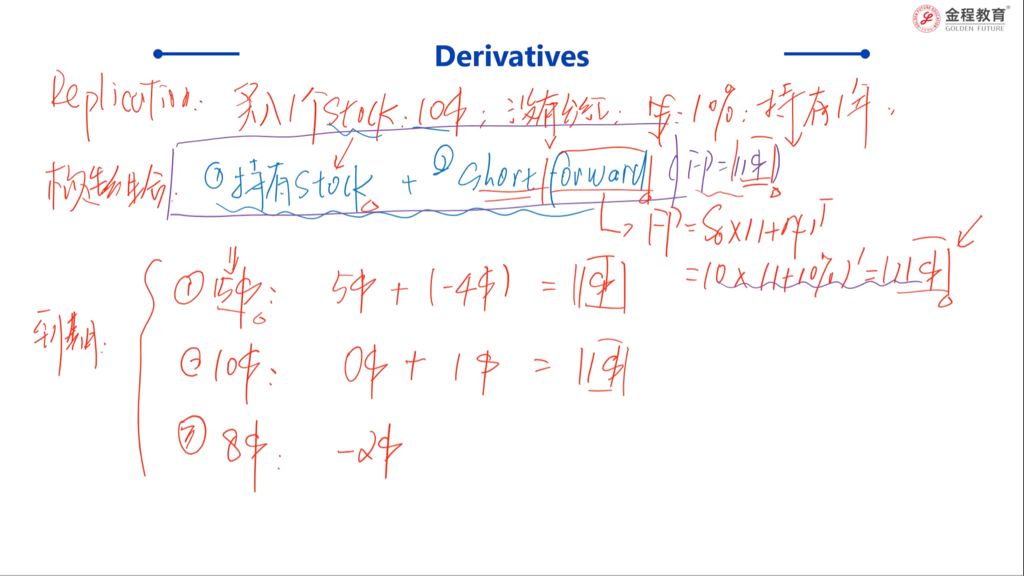 金程教育®
GOLDEN FUTURE
Derivatives
Replication: 买入1个stock:10$;没有分红;rf:10%;持有1年,
构建组合: ①持有stock + ②short forward (FP=11$)
FP=S₀×(1+rf)ᵀ
=10×(1+10%)¹=11$
到期:
①15$: 5$+(-4$) = 1$
②10$: 0$ + 1$ = 1$
③8$: -2$